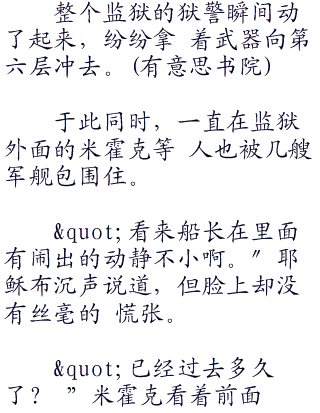 整个监狱的狱警瞬间动
了起来，纷纷拿 着武器向第
六层冲去。(有意思书院)
于此同时，一直在监狱
外面的米霍克等 人也被几艘
军舰包围住。
&quot;看来船长在里面
有闹出的动静不小啊。" 耶
稣布沉声说道，但脸上却没
有丝毫的 慌张。
&quot;已经过去多久
了？ ”米霍克看着前面